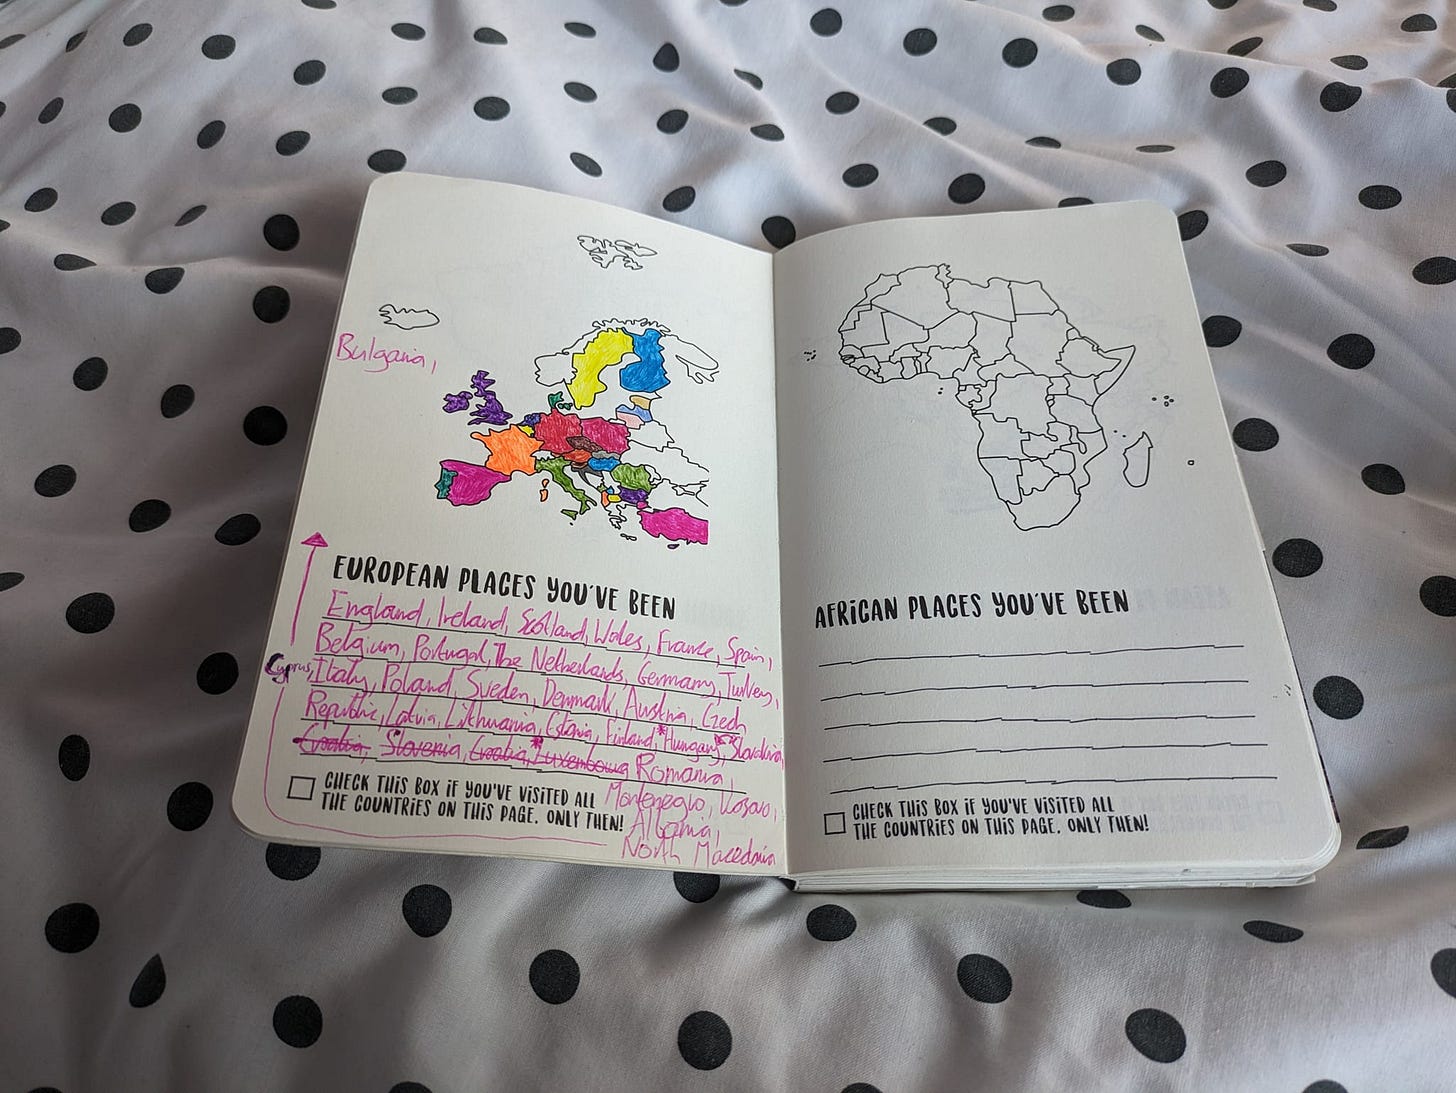 Bulgaria,
EUROPEAN PLACES YOU'VE BEEN
England, Ireland, Scotland, Wales, France, Spain,
Belgium, Portugal, The Netherlands, Germany, Turkey,
Cyprus, Italy, Poland, Sweden, Denmark, Austria, Czech
Republic, Latvia, Lithuania, Estonia, Finland, *Hungary, Slovakia,
Croatia, Slovenia, Croatia, *Luxembourg Romania,
CHECK THIS BOX IF YOU'VE VISITED ALL
THE COUNTRIES ON THIS PAGE. ONLY THEN!
Montenegro, Kosovo,
Albania,
North Macedonia
AFRICAN PLACES YOU'VE BEEN
CHECK THIS BOX IF YOU'VE VISITED ALL
THE COUNTRIES ON THIS PAGE. ONLY THEN!